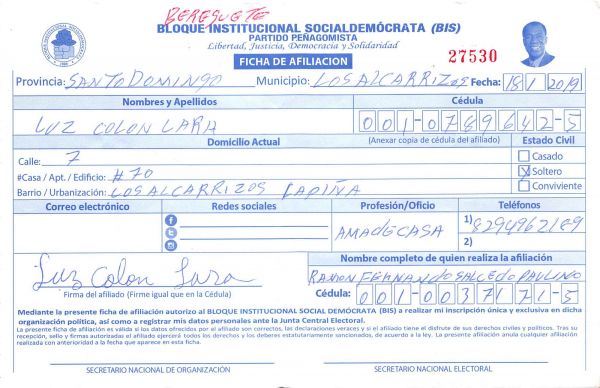 BEREGUETE
BLOQUE INSTITUCIONAL SOCIALDEMÓCRATA (BIS)
PARTIDO PEÑAGOMISTA
Libertad, Justicia, Democracia y Solidaridad
FICHA DE AFILIACION
27530
Provincia: SANTO DOMINGO Municipio: LOS ALCARRIZOS Fecha: 18/1/2019
Nombres y Apellidos Cédula
LUZ COLON LARA 001-0789642-5
Domicilio Actual (Anexar copia de cédula del afiliado) Estado Civil
Calle: 7 Casado
#Casa / Apt. / Edificio: #70 X Soltero
Barrio / Urbanización: LOS ALCARRIZOS LAPIÑA Conviviente
Correo electrónico Redes sociales Profesión/Oficio Teléfonos
AMA DE CASA 1) 8294962189
2)
Luz Colon Lara
Firma del afiliado (Firme igual que en la Cédula)
Nombre completo de quien realiza la afiliación
RAMON FERNANDO SALCEDO PAULINO
Cédula: 001-0037171-5
Mediante la presente ficha de afiliación autorizo al BLOQUE INSTITUCIONAL SOCIAL DEMÓCRATA (BIS) a realizar mi inscripción única y exclusiva en dicha
organización política, así como a registrar mis datos personales ante la Junta Central Electoral.
La presente ficha de afiliación es válida si los datos ofrecidos por el afiliado son correctos, las declaraciones veraces y si el afiliado tiene el disfrute de sus derechos civiles y políticos. Tras su
recepción, sello y firmas autorizadas el afiliado ejercerá todos los derechos y los deberes estatutariamente sancionados, de acuerdo a la ley. La presente afiliación anula cualquier afiliación
realizada con anterioridad a la fecha que aparece en esta ficha.
SECRETARIO NACIONAL DE ORGANIZACIÓN SECRETARIO NACIONAL ELECTORAL